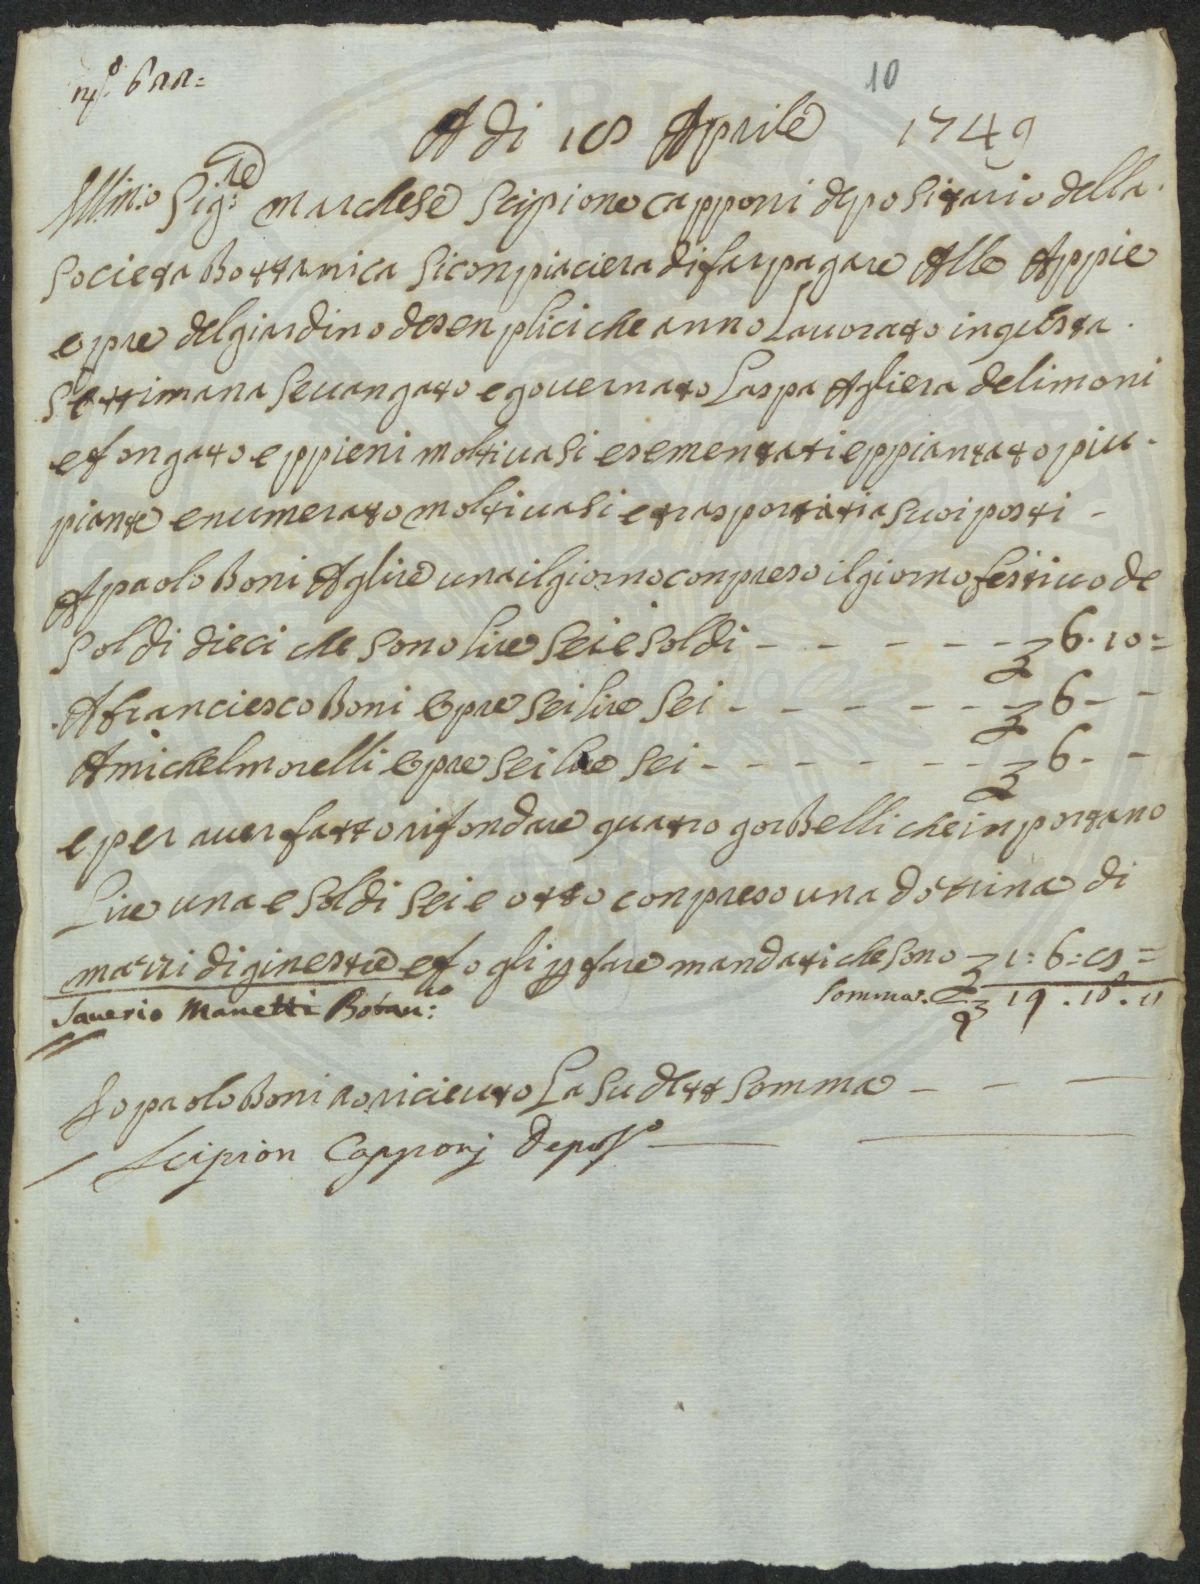 10
A di 18 Aprile 1749
Illm:o Sig:re marchese Scipione capponi depositario della
Societa Bottanica si conpiaciera di far pagare Alle Appie
opre del giardino de senplici che anno Lavorato in questa
Settimana se vangato e governato La spa Agliera de limoni
e fongato e ppieni molti vasi e sementati e ppiantato piu
piante e numerato molti vasi e trasportati a suoi posti
A paolo Boni A glire una il giorno conpreso il giorno festivo de
soldi dieci che sono lire sei e soldi - - - - - 6.10=
A franciesco Boni opre sei lire sei - - - - - 6 - -
A michel morelli opre sei lire sei - - - - - 6 - -
e per aver fatto rifondare quatro gorbelli che inportano
Lire una e soldi sei e otto conpreso una dozzina di
mazzi di ginestre e fogli per fare mandati che sono 1:6:8=
Saverio Manetti Botan:co Somma. 19.10.
Io paolo Boni o ricieuto La sudetta somma - - -
Scipion Capponj Depos:o